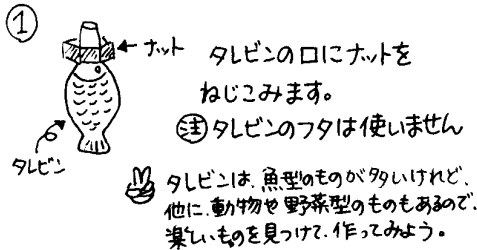 ①
ナット
タレビンの口にナットを
ねじこみます。
㊟タレビンのフタは使いません
タレビン
タレビンは、魚型のものが多いけれど、
他に、動物や野菜型のものもあるので、
楽しいものを見つけて、作ってみよう。